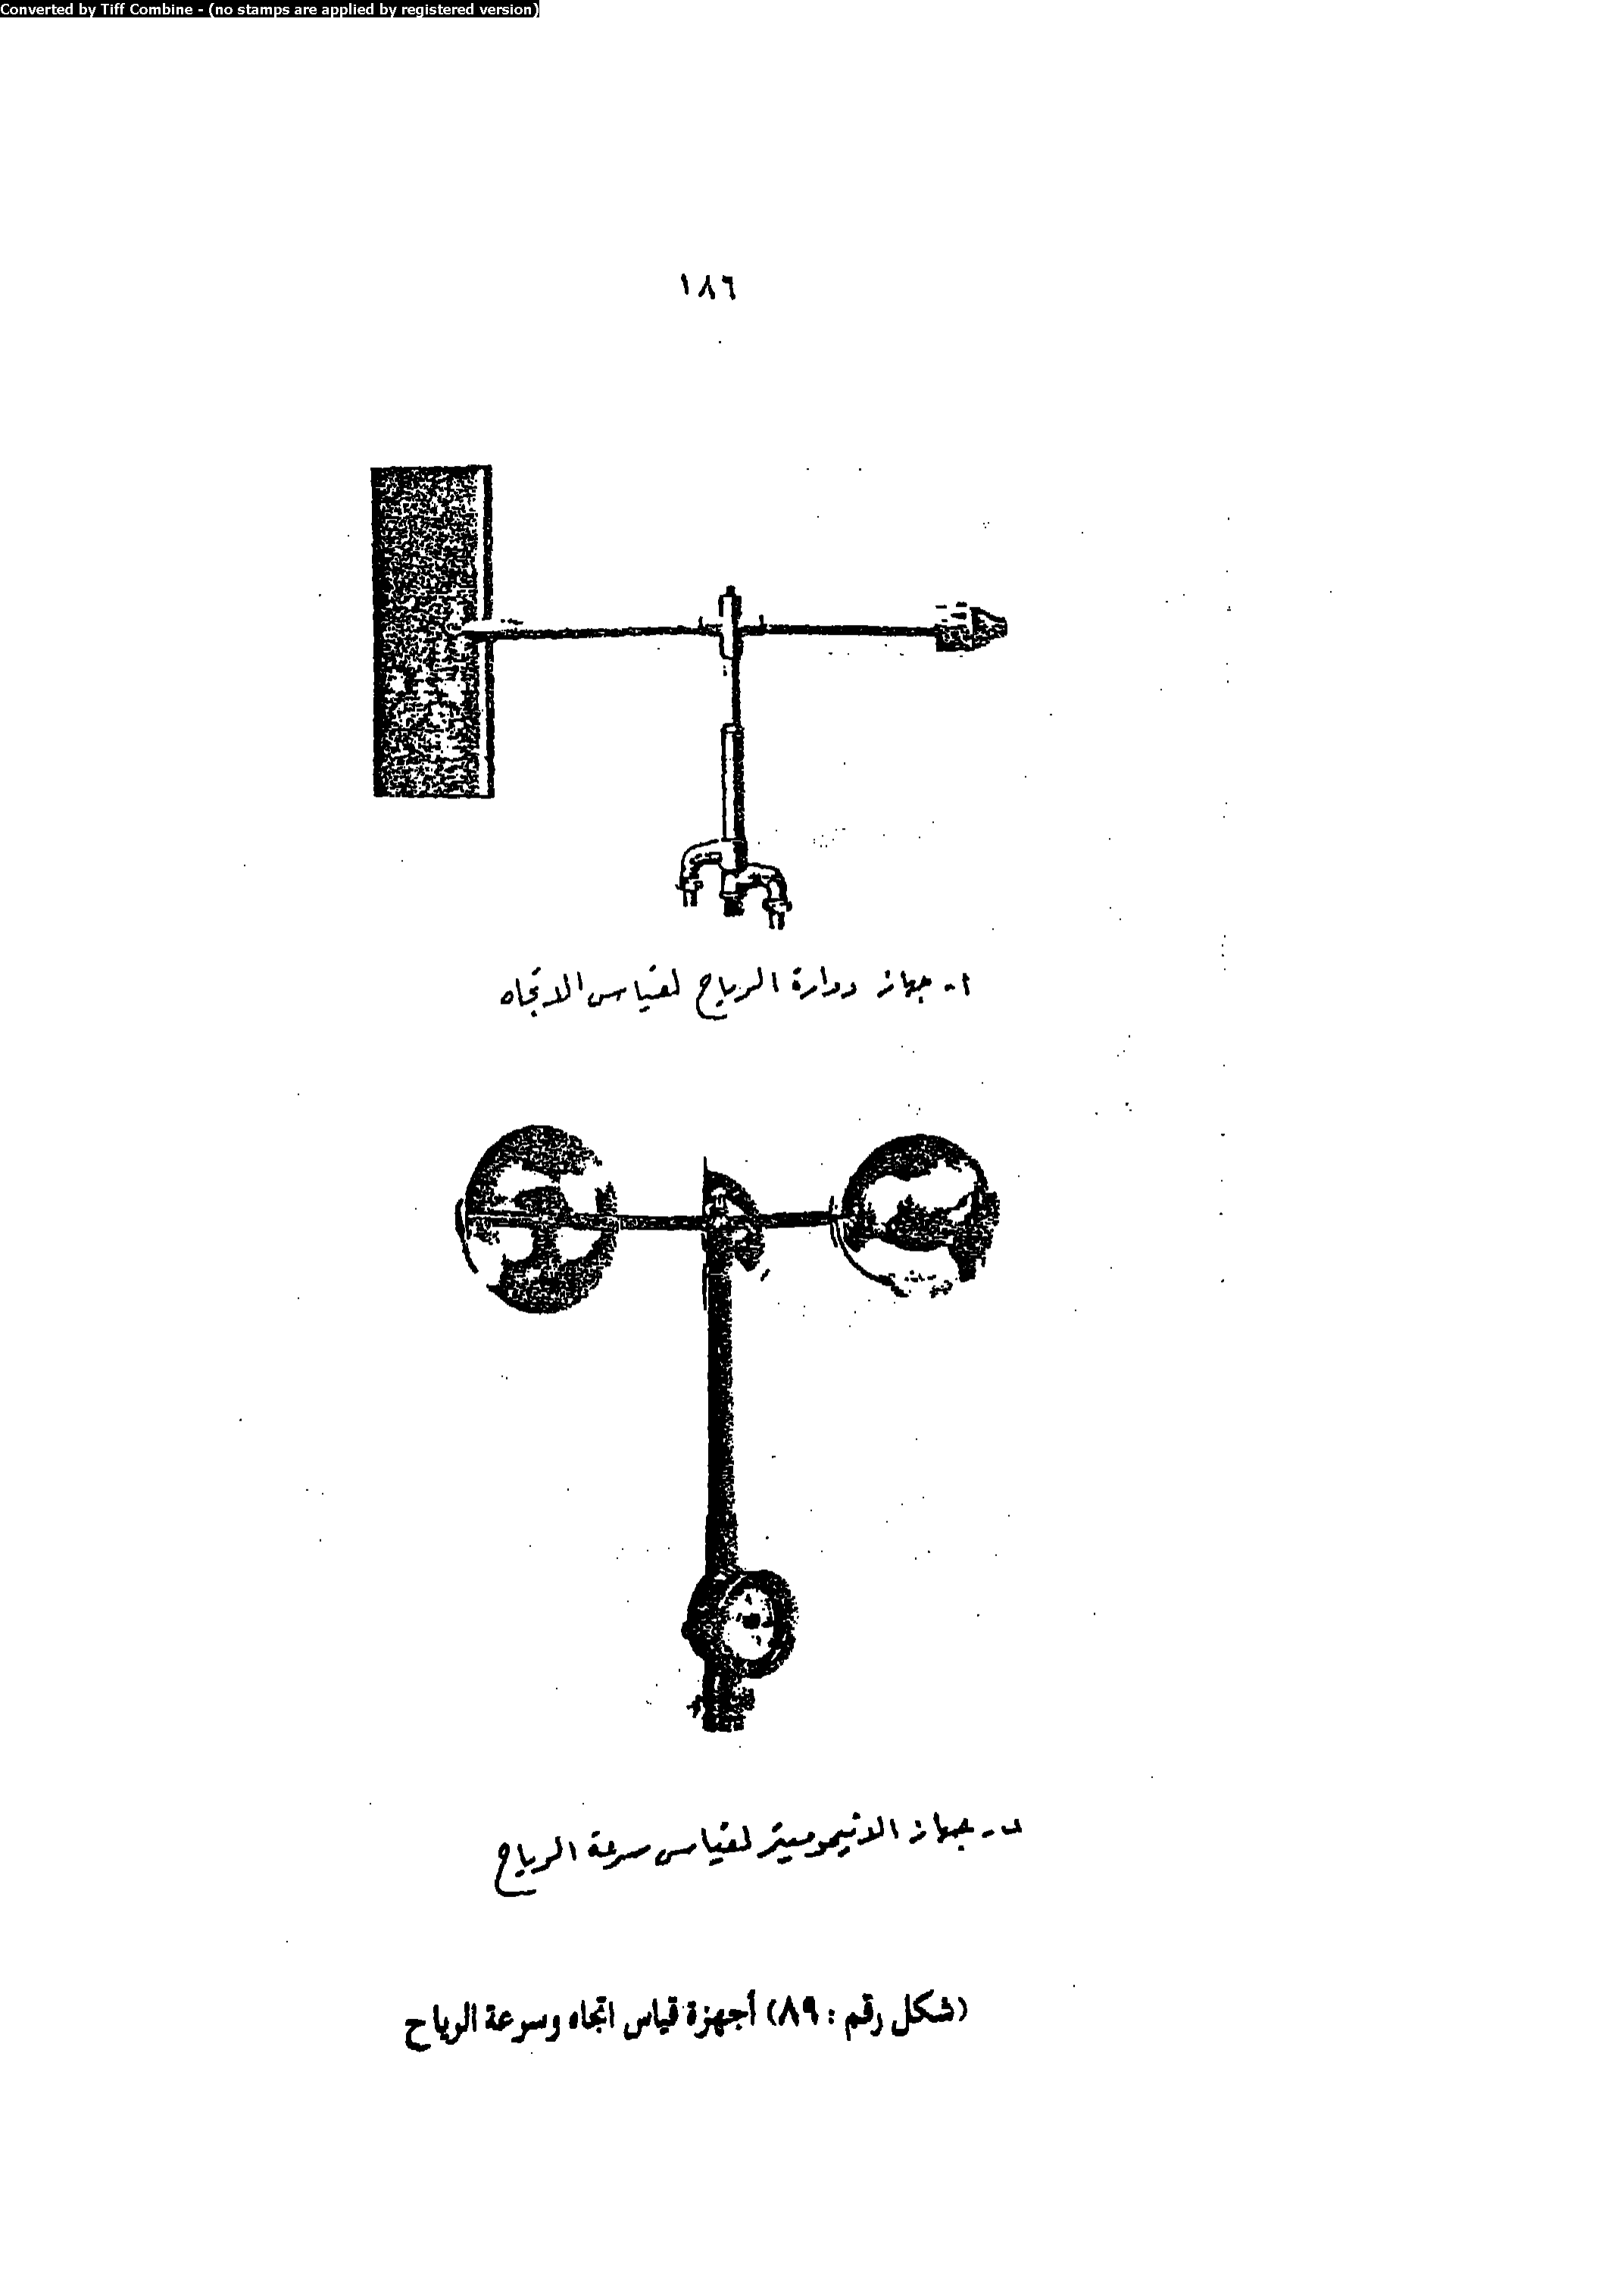 Converted by Tiff Combine - (no stamps are applied by registered version)
١٨٦
ا- جهاز دوارة الرياح لقياس الاتجاه
ب- جهاز الانيموميتر لقياس سرعة الرياح
(شكل رقم : ٨٩) أجهزة قياس اتجاه وسرعة الرياح